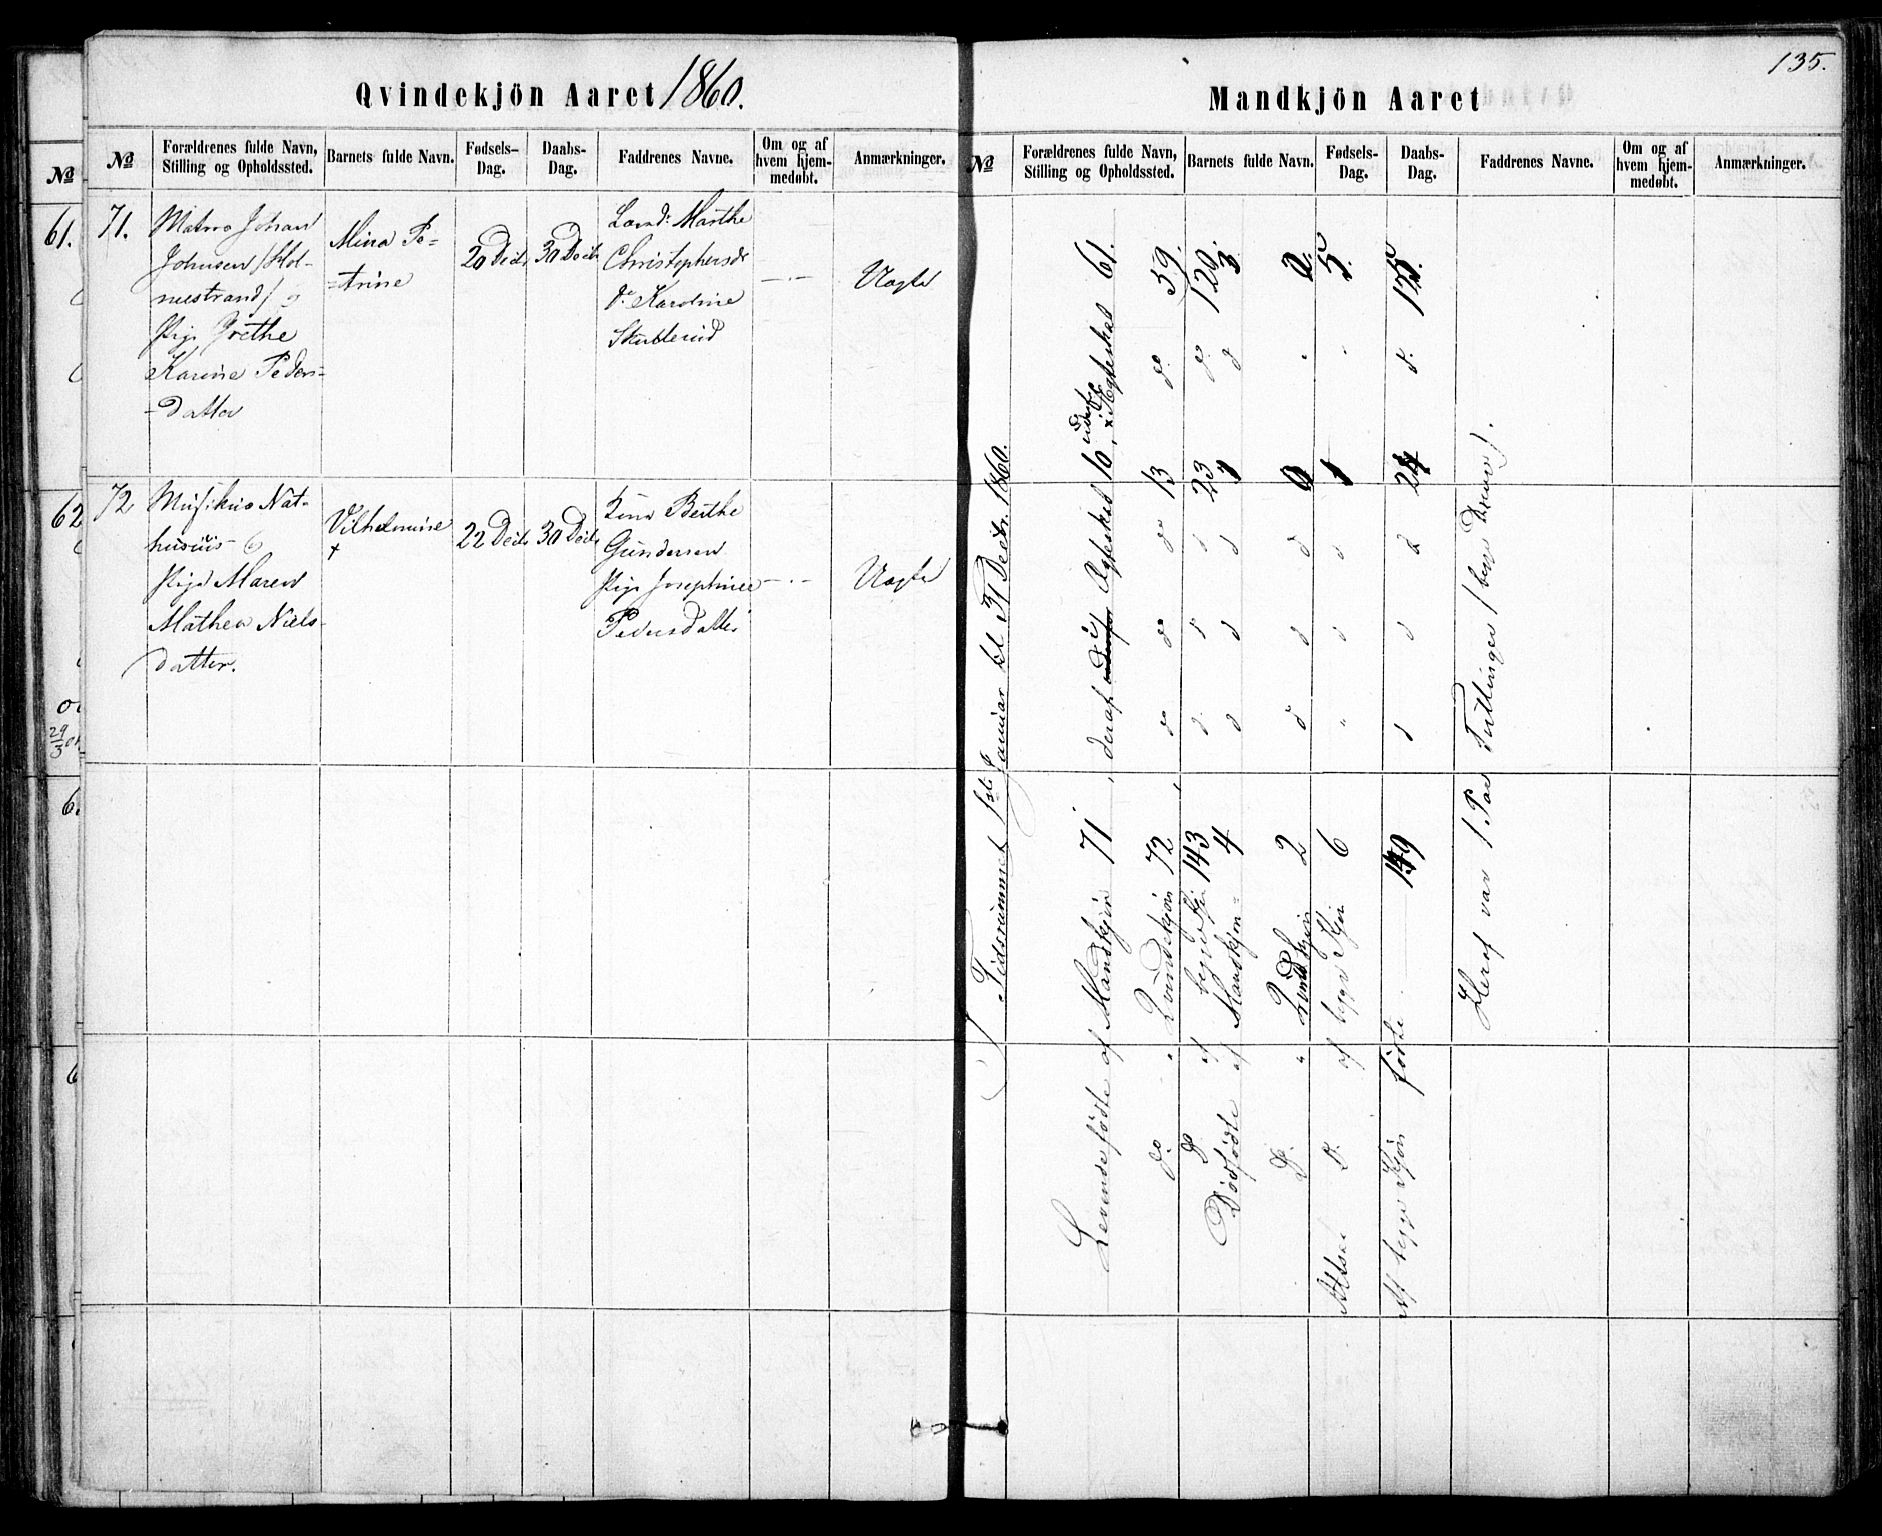 135.
Qvindekjön Aaret 1860.
Mandkjön Aaret
No
No
Forældrenes fulde Navn, Stilling og Opholdssted.
Barnets fulde Navn.
Fødsels-Dag.
Daabs-Dag.
Faddrenes Navne.
Om og af hvem hjem-medøbt.
Anmærkninger.
61.
71.
Matros Johan
Johnsen /Hol-
mestrand/ &
Pige Grethe
Karine Peders-
-datter
Mina Pe-
-trine
20 Decb
30 Decb
Marthe
Christophersdr
do Karoline
Skullerud
— · —
Uægte
62
72
Musikus Nat-
husius &
Pige Maren
Mathea Niels-
datter.
Vilhelmine
+
22 Decb
30 Decb
Kone Berthe
Gundersen
Pige Josephine
Pedersdatter
— · —
Uægte
29/3
6
6
No
Forældrenes fulde Navn, Stilling og Opholdssted.
Barnets fulde Navn.
Fødsels-Dag.
Daabs-Dag.
Faddrenes Navne.
Om og af hvem hjem-medøbt.
Anmærkninger.
I Tidsrummet 1ste Januar til 31 Decbr. 1860.
Levende fødte af Mandkjön 71, deraf udenfor Ægteskab 10, i Ægteskab 61.
do. " Qvindekjön 72, do do do 13 do. 59.
do af begge Kjön 143 d d d 23 do. 120.
Dödfödte af Mandkjön 4 d d d 1 d 3
do. " Qvindekjön 2 d d d 0 " 2.
Altsaa d. af begge Kjön 6 " d d 1 " 5.
Af begge Kjön födte 149 d d d 24 d. 125.
Heraf var 1 Par Tvillinger